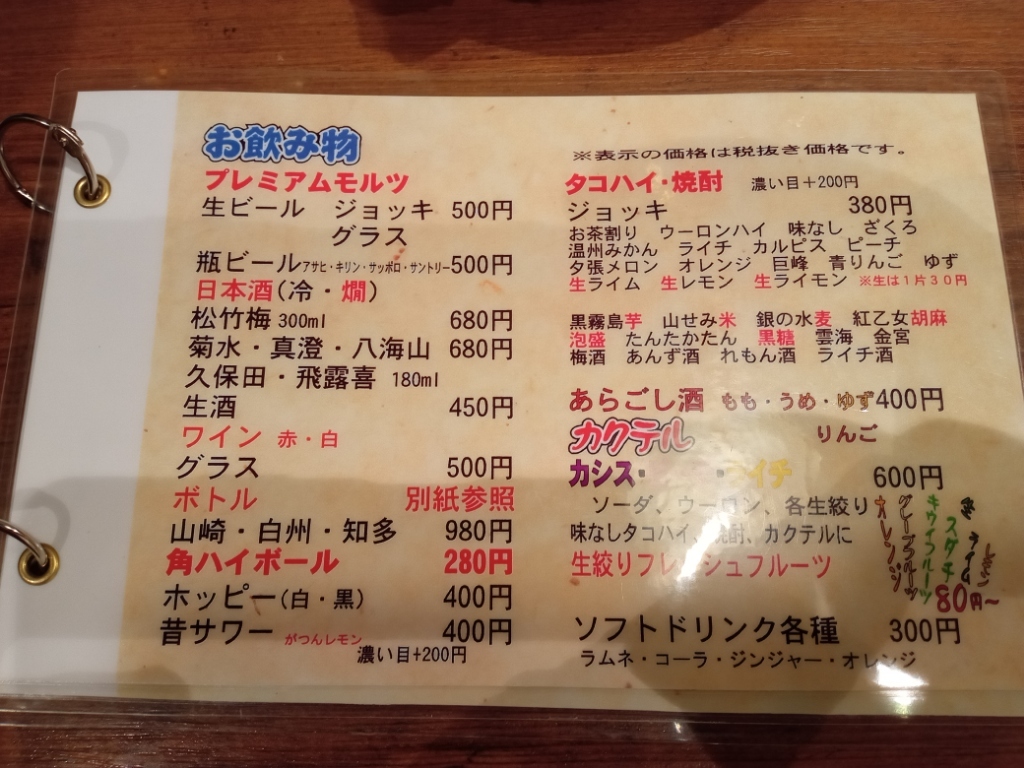 お飲み物
プレミアムモルツ
生ビール ジョッキ 500円
グラス
瓶ビール アサヒ・キリン・サッポロ・サントリー 500円
日本酒(冷・燗)
松竹梅 300ml 680円
菊水・真澄・八海山 680円
久保田・飛露喜 180ml
生酒 450円
ワイン 赤・白
グラス 500円
ボトル 別紙参照
山崎・白州・知多 980円
角ハイボール 280円
ホッピー(白・黒) 400円
昔サワー がつんレモン 400円
濃い目+200円
※表示の価格は税抜き価格です。
タコハイ・焼酎 濃い目+200円
ジョッキ 380円
お茶割り ウーロンハイ 味なし ざくろ
温州みかん ライチ カルピス ピーチ
夕張メロン オレンジ 巨峰 青りんご ゆず
生ライム 生レモン 生ライモン ※生は1片30円
黒霧島芋 山せみ米 銀の水麦 紅乙女胡麻
泡盛 たんたかたん 黒糖 雲海 金宮
梅酒 あんず酒 れもん酒 ライチ酒
あらごし酒 もも・うめ・ゆず 400円
りんご
カクテル
カシス・ ・ライチ 600円
ソーダ、ウーロン、各生絞り
味なしタコハイ、焼酎、カクテルに
生絞りフレッシュフルーツ
オレンジ
グレープフルーツ
キウイフルーツ
スダチ
ライム
レモン
80円~
ソフトドリンク各種 300円
ラムネ・コーラ・ジンジャー・オレンジ